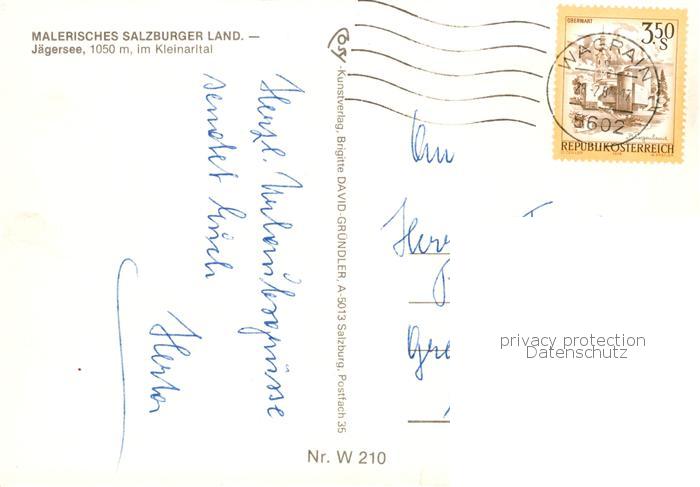 MALERISCHES SALZBURGER LAND. —
Jägersee, 1050 m, im Kleinarltal
Herzl. Urlaubsgrüsse
sendet Euch
Herta
ÖSV -Kunstverlag, Brigitte DAVID-GRÜNDLER, A-5013 Salzburg, Postfach 35
Nr. W 210
OBERWART
3.50
S
WAGRAIN
5602
Burgenland
REPUBLIK ÖSTERREICH
An
Herr
privacy protection
Datenschutz